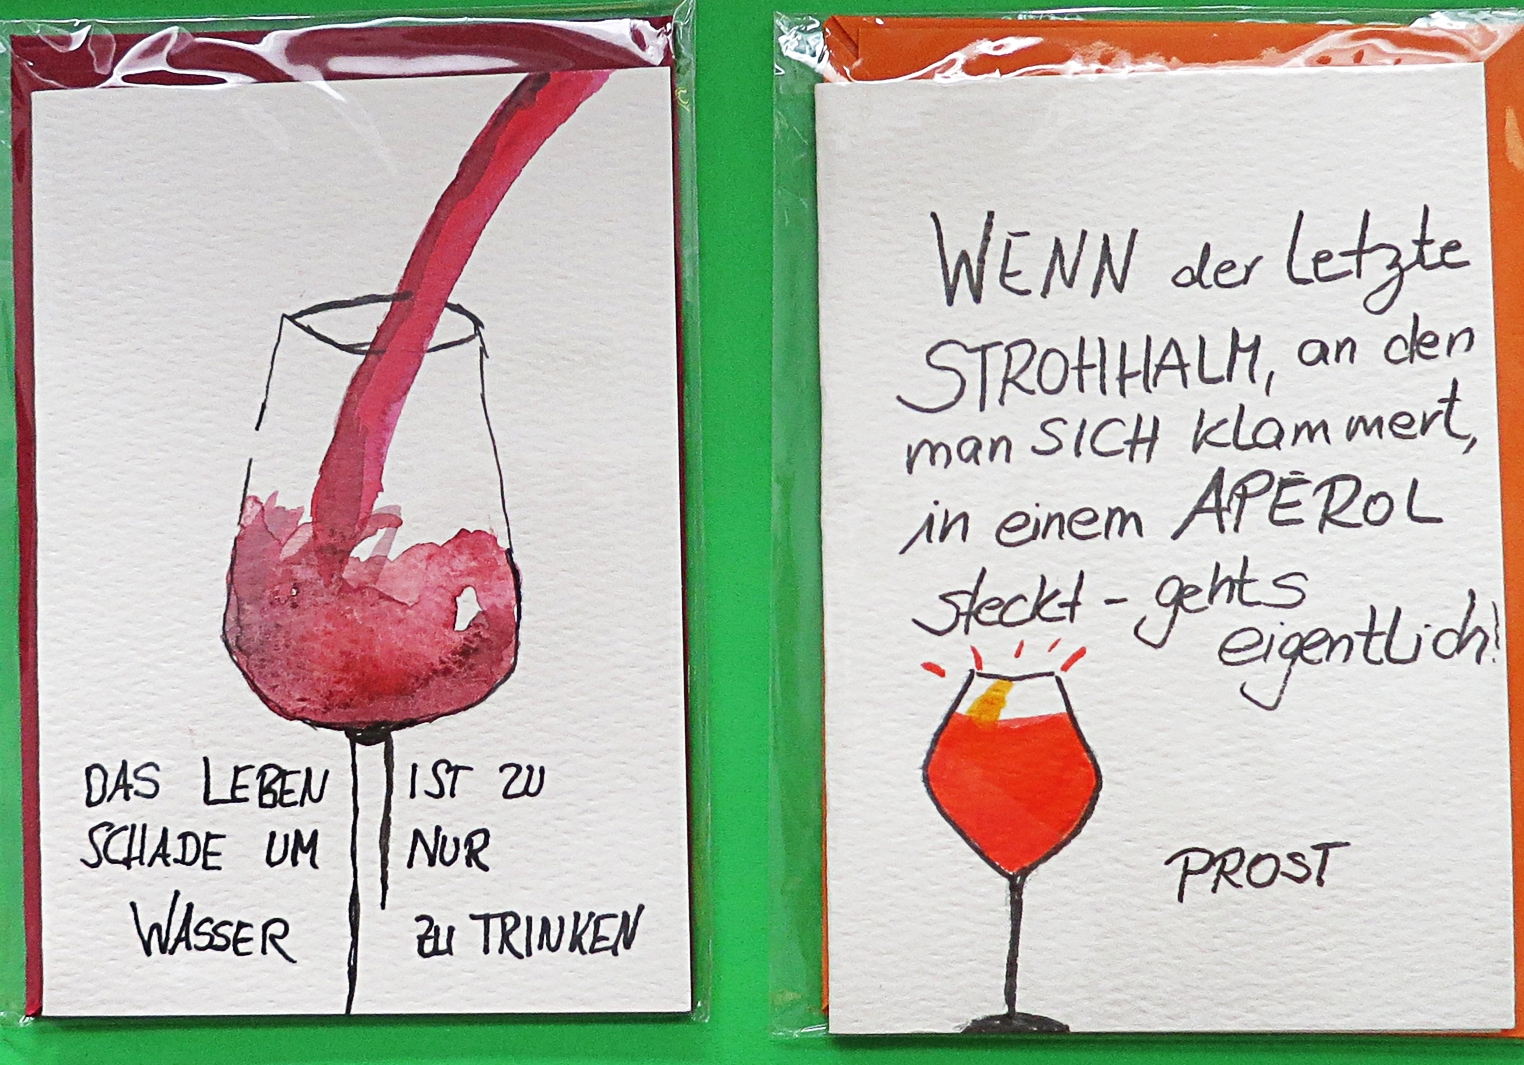 DAS LEBEN IST ZU
SCHADE UM NUR
WASSER ZU TRINKEN
WENN der letzte
STROHHALM, an den
man SICH klammert,
in einem APĒROL
steckt - gehts
eigentlich!
PROST